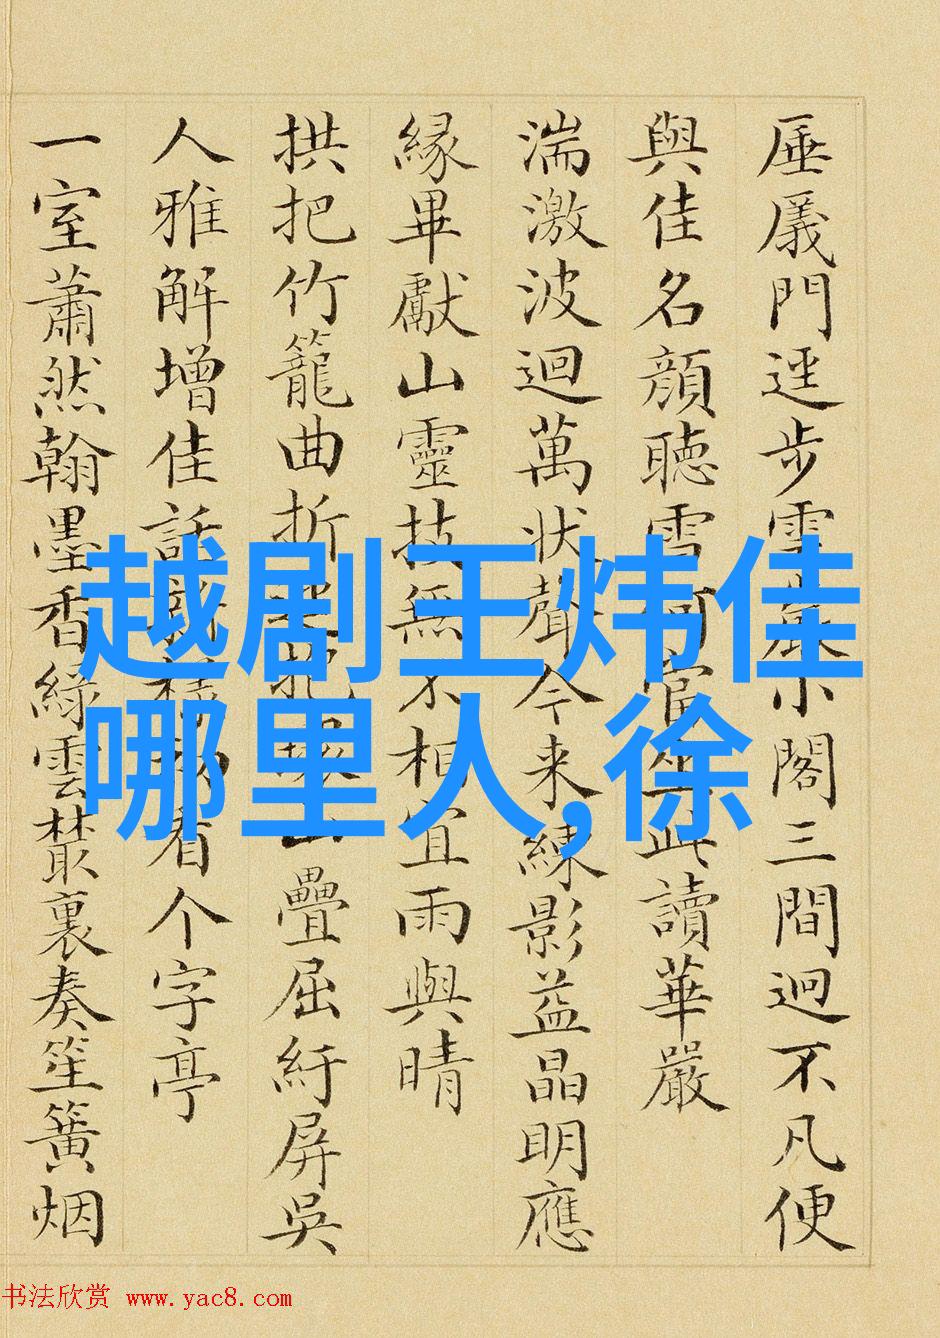 厜㕒門逕步小閣三間迥不凡便
與佳名顏聽雪何當坐此讀華嚴
湍激波迴萬狀聲今来練影益晶明應
緣畢獻山靈技無不相宜雨與晴
拱把竹籠曲折疊屈紆屏吳
人雅解增佳話看个字亭
一室蕭然翰墨香綠雲藂裏奏笙簧烟
越剧王炜佳
哪里人,徐
书法欣赏 www.yac8.com